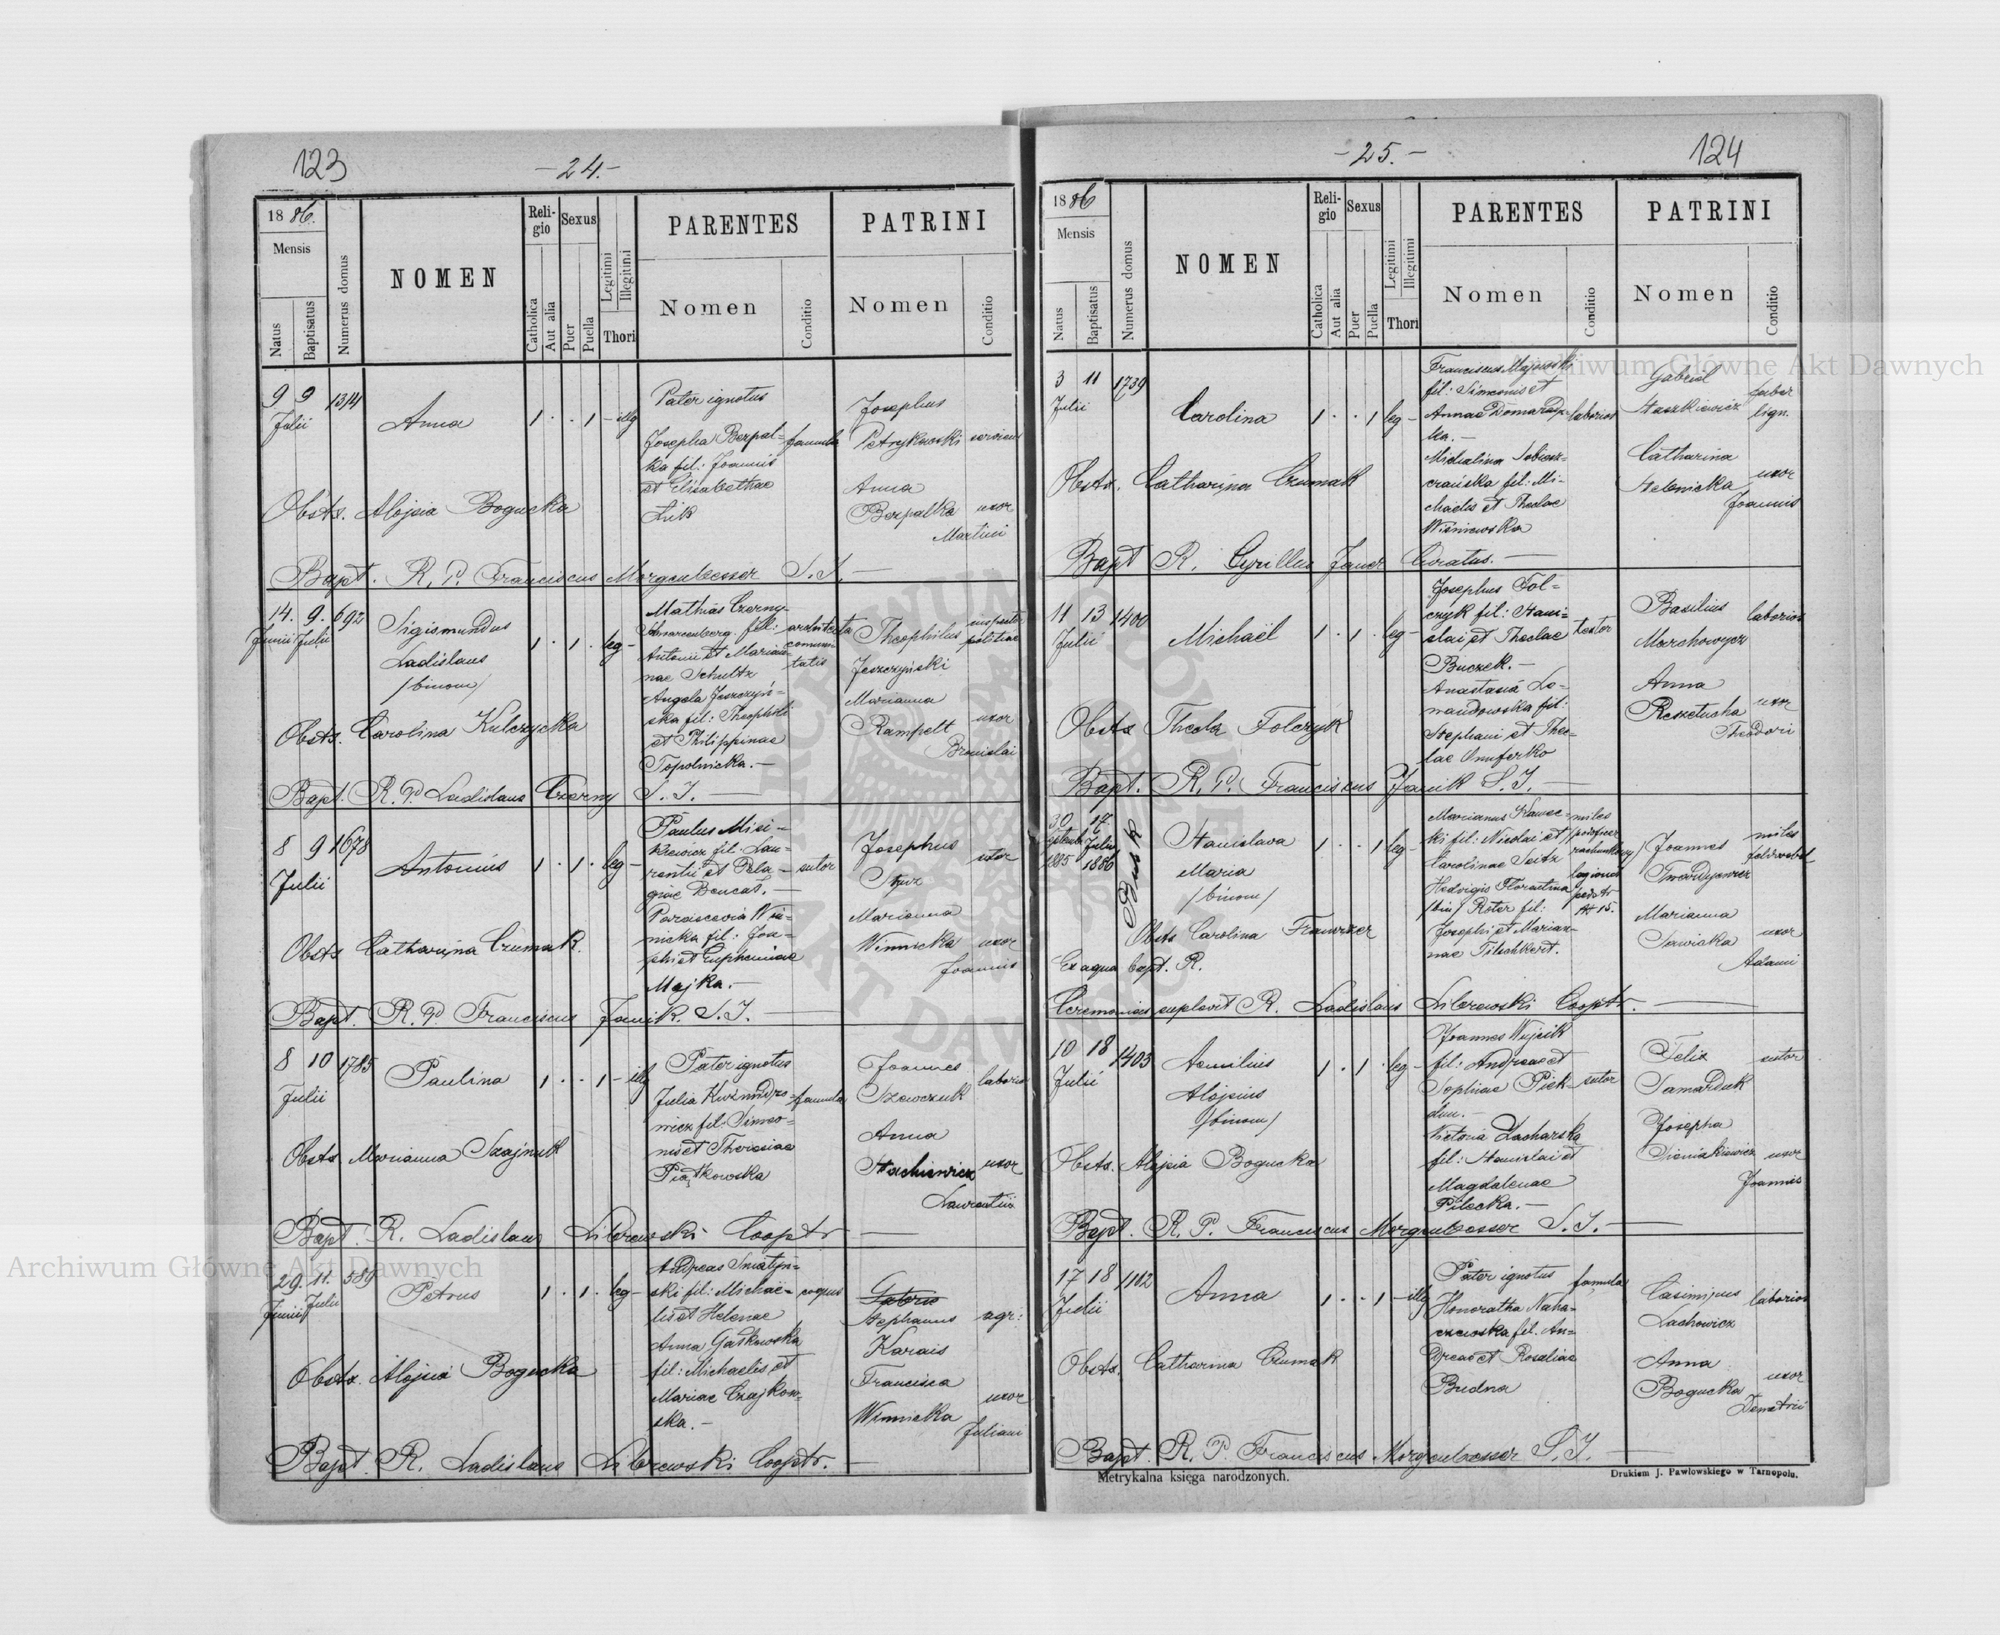 123
- 24. -
1886.
Mensis
Natus
Baptisatus
Numerus domus
NOMEN
Religio
Catholica
Aut alia
Sexus
Puer
Puella
Legitimi
Illegitimi
Thori
PARENTES
Nomen
Conditio
PATRINI
Nomen
Conditio
9 9 1314
Julii
Anna
1 · · 1 - illg
Pater ignotus
Josepha Bezpal-
ka fil: Joannis
et Elisabethae
famula
Josephus
Petrykowski
Anna
Bezpalka uxor
Martini
Obstx. Alojsia Bogucka
Bapt. R. P. Franciscus Morgenbesser S. J. —
14. 9. 692
Junii Julii
Sigismundus
Ladislaus
/binom/
1 · 1 · leg -
Mathias Czerny-
Schwarzenberg fil:
Antonii et Marian-
nae Schultz
Angela Jeszczyń-
ska fil: Theophili
et Philippinae
Topolnicka. —
architecta
commu-
tatis
Theophilus
Jeszczyński
Marianna
Rampelt uxor
Bronislai
Obstx. Carolina Kulczycka
Bapt. R. P. Ladislaus Czerny S. J. —
8 9 1678
Julii
Antonius
1 · 1 · leg -
Paulus Misi-
kiewicz fil: Lau-
rentii et Pela-
giae Bencat. —
sutor
Parascevia Win-
nicka fil: Jose-
phi et Eupheniae
Majka. —
Josephus
sutor
Marianna
Winnicka uxor
Joannis
Obstx Catharyna Czumak.
Bapt. R. P. Franciscus Janik. S. J. —
8 10 1785
Julii
Paulina
1 · · 1 - illg
Pater ignotus
famula
nicz fil: Simeo-
nis et Theresiae
Piątkowska
Joannes
Szewczuk
laborios
Anna
Stachiewicz uxor
Laurentii
Obstx. Marianna Szajnuk
Bapt. R. Ladislaus Librewski Cooptr —
29. 11. 589
Junii Julii
Petrus
1 · 1 · leg -
Andreas Sniatyn-
ski fil: Michaë-
lis et Helenae
Anna Gatkowska
fil: Michaelis et
Mariae Czajkow-
ska. —
Stephanus
Karais
Francisca
Winnicka uxor
Juliani
Obstx. Alojsia Bogucka
Bapt. R. Ladislaus Librewski Cooptr. —
- 25. -
124
1886
Mensis
Natus
Baptisatus
Numerus domus
NOMEN
Religio
Catholica
Aut alia
Sexus
Puer
Puella
Legitimi
Illegitimi
Thori
PARENTES
Nomen
Conditio
PATRINI
Nomen
Conditio
3 11 1739
Julii
Carolina
1 · · 1 leg -
Franciscus Majewski
fil: Simeonis et
Annae Domaradz-
ka. —
laborios
fil: Mi-
chaelis et Theclae
Wiśniewska
Gabriel
Staszkiewicz
faber
lign.
Catharina
Stelnicka
uxor
Joannis
Obstx. Catharina Czumak
Bapt R. Cyrillus Jauer Curatus. —
11 13 1400
Julii
Michaël
1 · 1 · leg -
Josephus Fol-
czyk fil: Stani-
slai et Theclae
Buczek. —
textor
Anastasia Lo-
mandowska fil:
Stephani et The-
clae Onuferko
Basilius
Marchowycz
laborios
Anna
Reszetucha
uxor
Theodori
Obstx Thecla Folczyk
Bapt. R. P. Franciscus Janik S. J. —
30 17
Julii
1885 1886
Busk
Stanislava
Maria
/binom/
1 · · 1 leg -
Marianus Kawec-
ki fil: Nicolai et
Carolinae Seitz
Hedvigis Florentina
/bin/ Reter fil:
Josephi et Marian-
nae Titschkert.
miles
Joannes
miles
feldwebel
Marianna
Sawicka uxor
Adami
Obstx Carolina
Ex aqua bapt. R.
Ceremonias suplevit R. Ladislaus Librewski Cooptr. —
10 18 1403
Julii
Aemilius
Alojsius
/binom/
1 · 1 · leg -
Joannes Wujcik
fil: Andreae et
Sophiae Piek-
sutor
Victoria Zacharska
fil: Stanislai et
Magdalenae
Pilecka. —
Felix
Samarduk
sutor
Josepha
uxor
Joannis
Obstx. Alojsia Bogucka
Bapt. R. P. Franciscus Morgenbesser S. J. —
17 18 1112
Julii
Anna
1 · · 1 - illg
Pater ignotus
famula
Honoratha Naha-
czewska fil. An-
dreae et Rosaliae
Budna
Casimirus
Lachowicz
laborios
Anna
Bogucka
uxor
Demetrii
Obstx. Catharina Czumak
Bapt. R. P. Franciscus Morgenbesser S. J. —
Metrykalna księga narodzonych.
Drukiem J. Pawłowskiego w Tarnopolu.
Archiwum Główne Akt Dawnych
Archiwum Główne Akt Dawnych